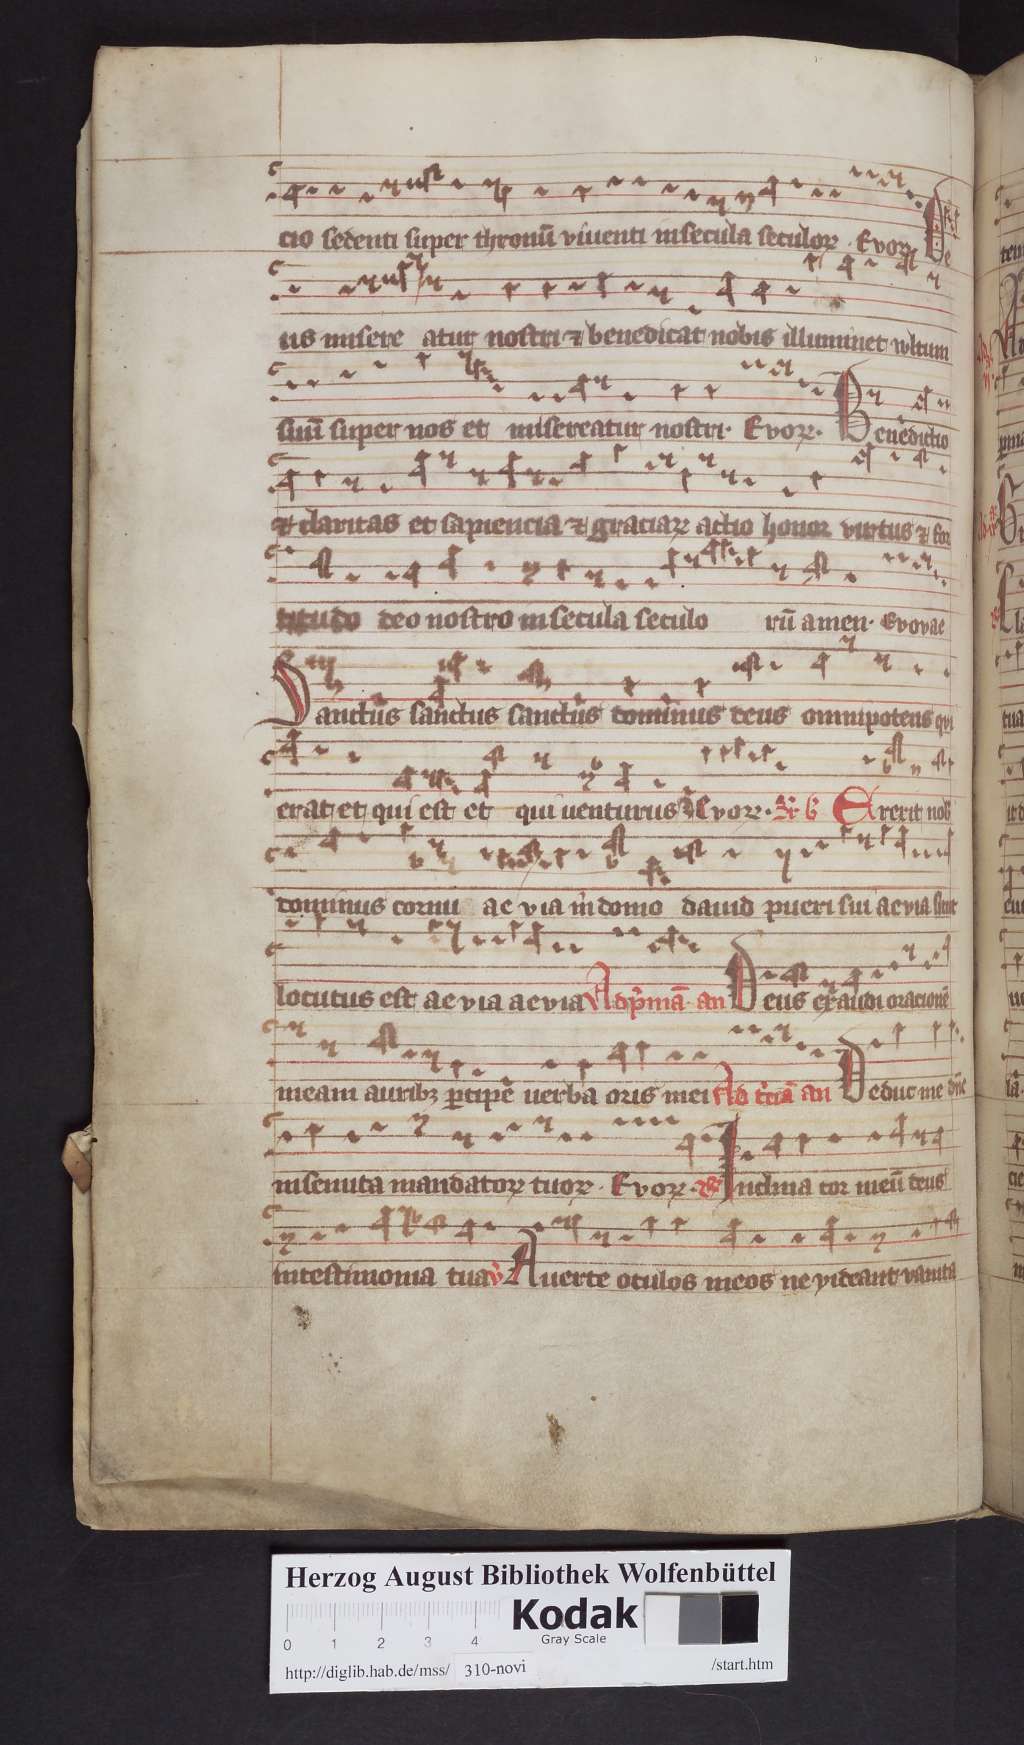 cio sedenti super thronū viuenti in secula seculoꝝ · Evoꝝ De
us misere atur nostri ⁊ benedicat nobis illuminet vultum
suū super nos et misereatur nostri · Evoꝝ · Benedictio
et claritas et sapiencia ⁊ graciaꝝ actio honor virtus ⁊ for
titudo deo nostro in secula seculo rū amen · Evovae
Sanctus sanctus sanctus dominus deus omnipotens qui
erat et qui est et qui uenturus Evoꝝ · Erexit nob
dominus cornu aevia in domo dauid pueri sui aevia sicut
locutus est aevia aevia Ad pͥmā an Deus exaudi orationē
meam auribꝫ ꝑcipe uerba oris mei Ad tciā an Deduc me dn̄e
in semita mandatoꝝ tuoꝝ · Evoꝝ · Inclina cor meū deus
in testimonia tua Auerte oculos meos ne videant vanita
Herzog August Bibliothek Wolfenbüttel
Kodak
Gray Scale
0 1 2 3 4
http://diglib.hab.de/mss/ 310-novi /start.htm